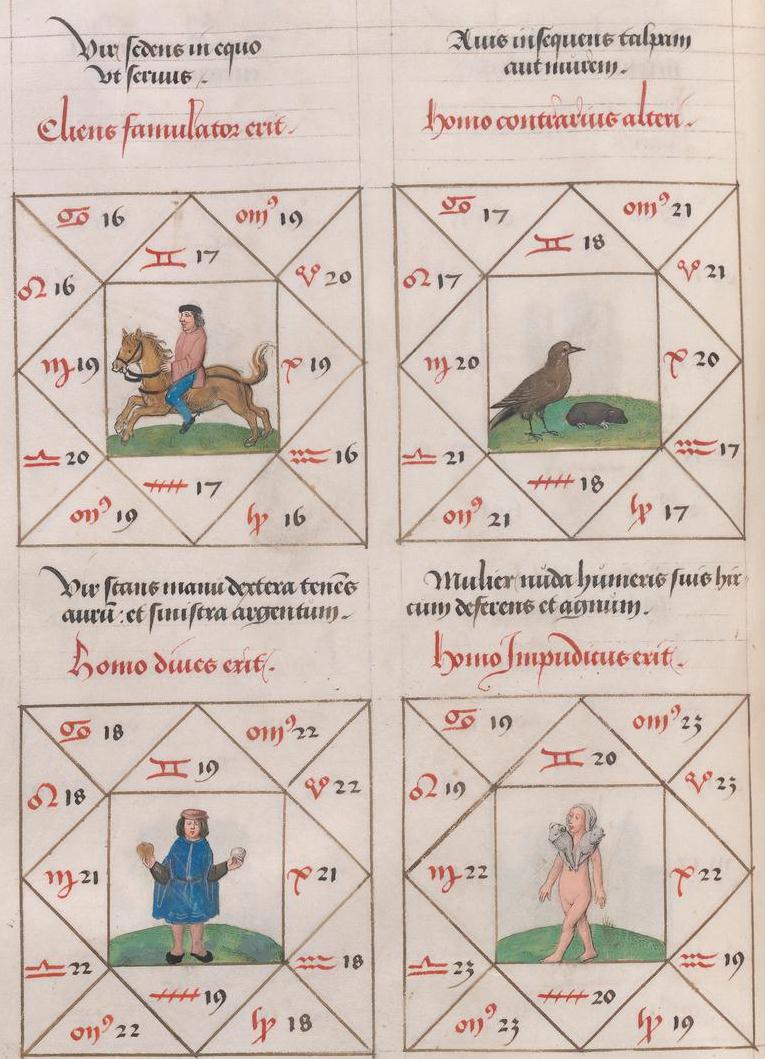 Vir sedens in equo
vt seruus.
Cliens famulator erit.
♋ 16 om⁹ 19
♊ 17
♌ 16 ♈ 20
♍ 19 ♓ 19
♎ 20 ♒ 16
♐ 17
om⁹ 19 ♑ 16
Auis insequens talpam
aut murem.
Homo contrarius alteri.
♋ 17 om⁹ 21
♊ 18
♌ 17 ♈ 21
♍ 20 ♓ 20
♎ 21 ♒ 17
♐ 18
om⁹ 21 ♑ 17
Vir stans manu dextera tenēs
aurū: et sinistra argentum.
Homo diues erit.
♋ 18 om⁹ 22
♊ 19
♌ 18 ♈ 22
♍ 21 ♓ 21
♎ 22 ♒ 18
♐ 19
om⁹ 22 ♑ 18
Mulier nuda humeris suis hir
cum deferens et agnum.
Homo Impudicus erit.
♋ 19 om⁹ 23
♊ 20
♌ 19 ♈ 23
♍ 22 ♓ 22
♎ 23 ♒ 19
♐ 20
om⁹ 23 ♑ 19